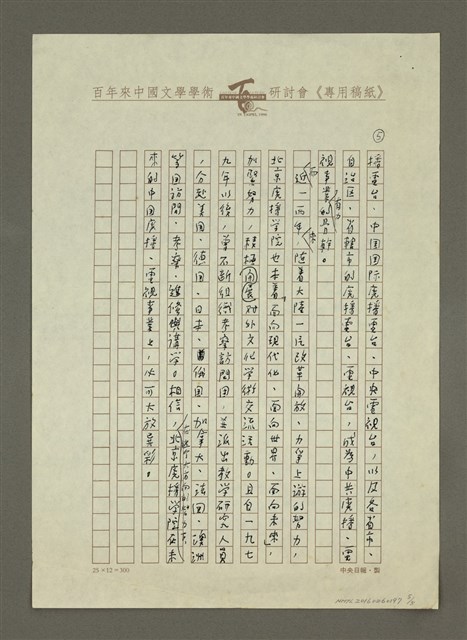 百年來中國文學學術研討會《專用稿紙》
⑤
播電台、中国国际廣播電台、中央電視台,以及各省市、
自治區、省轄市的廣播電台、電視台,成為中共廣播、電
視事業的有力骨幹。
近一兩年來,随着大陸一片改革開放、力爭上游的努力,
北京廣播学院也本着「面向現代化、面向世界、面向未來」,
加緊努力,積極開展对外文化学術交流活動。且自一九七
九年以後,曾不断組織考察訪問团,並派出教学研究人員
,分赴美国、德国、日本、俄国、加拿大、法国、澳洲
等国訪問、考察、進修與講学。相信,在這个大方向的努力下,北京廣播学院在未
來的中国廣播、電視事業上,必可大放異彩。
25×12=300
中央日報・製